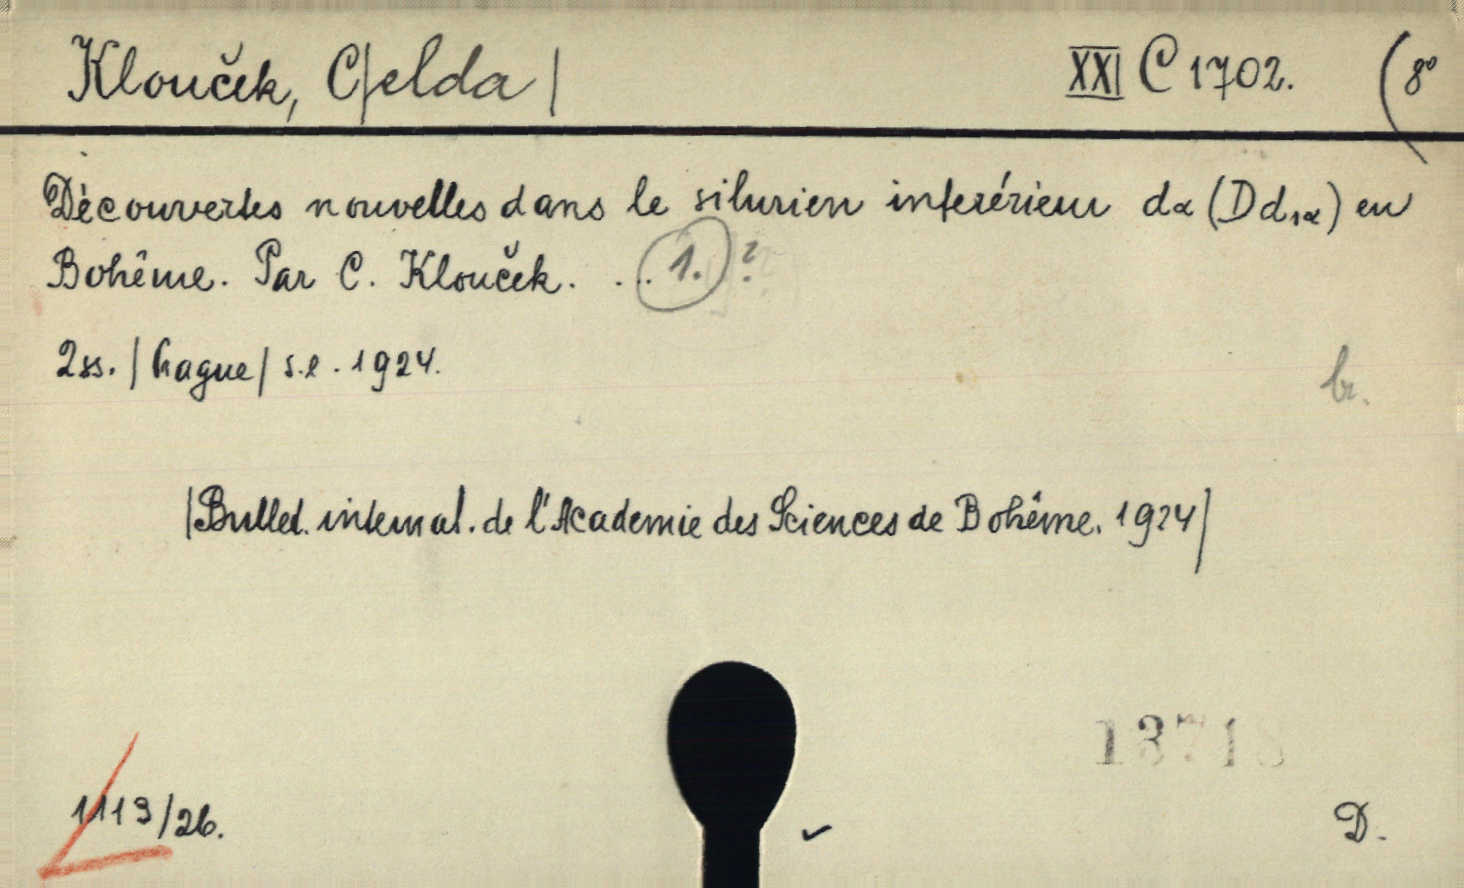 Klouček, C/elda/ XXI C 1702. (8°
Découvertes nouvelles dans le silurien inferérieur dα (Dd₁α) en
Bohême. Par C. Klouček. ... 1. ?
2 ss. /Prague/ s.l. 1924.
br.
/Bullet. internat. de l'Academie des Sciences de Bohême. 1924/
13718
1113/26.
D.